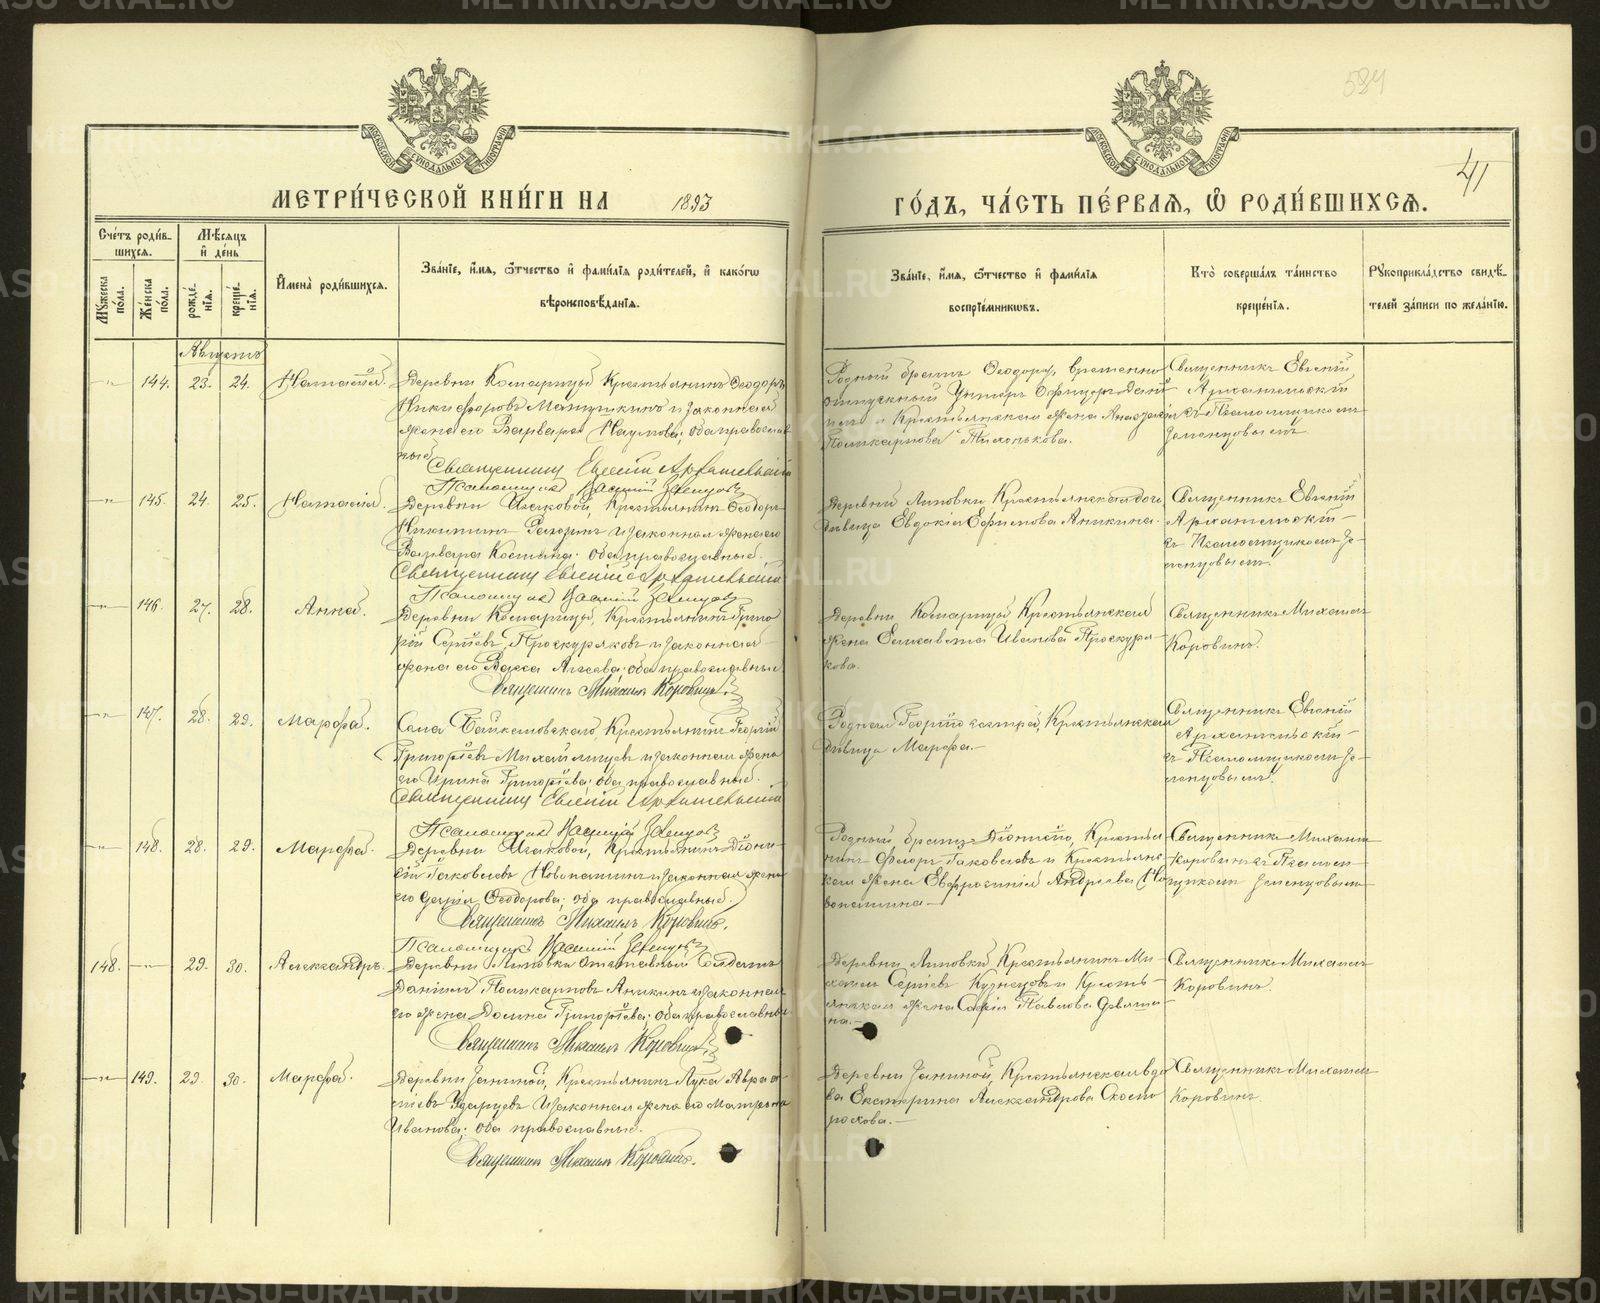 584
41
МОСКОВСКОЙ СУНОДАЛЬНОЙ ТИПОГРАФІИ
МОСКОВСКОЙ СУНОДАЛЬНОЙ ТИПОГРАФІИ
МЕТРИ́ЧЕСКОЙ КНИ́ГИ НА 1893 ГО́ДЪ, ЧА́СТЬ ПЕ́РВАЯ, Ѽ РОДИ́ВШИХСЯ.
Сче́тъ роди́в-
шихся.
Мꙋжеска по́ла.
Же́нска по́ла.
Мѣ́сяцъ
и҆ де́нь
рожде́нїя.
креще́нїя.
И҆мена̀ роди́вшихся.
Зва́нїе, и҆́мя, ѻ҆́тчество и҆ фами́лїя роди́телей, и҆ како́гѡ
вѣроисповѣ́данїя.
Зва́нїе, и҆́мя, ѻ҆́тчество и҆ фами́лїя
воспрїе́мникѡвъ.
Кто̀ соверша́лъ та́инство
креще́нїя.
Рꙋкоприкла́дство свидѣ́-
телей за́писи по жела́нїю.
Августъ
—„— 144. 23. 24. Наталія.
Деревни Комарицой Крестьянинъ Ѳеодоръ
Никифоровъ Матушкинъ и законная
жена его Варвара Наумова; оба православ
ные
Священникъ Евгеній Архангельскій
Псаломщикъ Василій Земенцовъ
Родный братъ Ѳеодора, временно
отпускный Унтеръ Офицеръ
и Крестьянская жена
Поликарпова Тихонькова.
Священникъ Евгеній
Архангельскій
съ Псаломщикомъ
Земенцовымъ
—„— 145. 24. 25. Наталія.
Деревни Исаковой, Крестьянинъ Ѳеодоръ
Никитинъ и законная жена его
Варвара Космина; оба православные.
Священникъ Евгеній Архангельскій
Псаломщикъ Василій Земенцовъ
Деревни Липовки Крестьянская дочь
дѣвица Евдокія Ефимова Аникина.
Священникъ Евгеній
Архангельскій —
съ Псаломщикомъ Зе-
менцовымъ.
—„— 146. 27. 28. Анна.
Деревни Комарицой, Крестьянинъ Григо
рій Сергѣевъ Проскуряковъ и законная
жена его Васса Агѣева; оба православные.
Священникъ Михаилъ Коровинъ.
Деревни Комарицой Крестьянская
жена Елисавета Иванова Проскуря-
кова.
Священникъ Михаилъ
Коровинъ.
—„— 147. 28. 29. Марѳа.
Села Крестьянинъ Георгій
Григорьевъ Михайлищевъ и законная жена
его Ирина Григорьева; оба православные.
Священникъ Евгеній Архангельскій
Псаломщикъ Василій Земенцовъ
Родная Георгія сестра, Крестьянская
дѣвица Марѳа. —
Священникъ Евгеній
Архангельскій —
съ Псаломщикомъ Зе-
менцовымъ.
—„— 148. 28. 29. Марѳа.
Деревни Исаковой, Крестьянинъ Діони-
сій Іаковлевъ Новопашинъ и законная жена
его Дарія Ѳеодорова; оба православные.
Священникъ Михаилъ Коровинъ.
Псаломщикъ Василій Земенцовъ
Родный братъ Діонисія, Крестья
нинъ Флоръ Іаковлевъ и Крестьянс-
кая жена Евфросинія Андреева Но
вопашина —
Священникъ Михаилъ
Коровинъ съ Псалом-
щикомъ Земенцовымъ
148. —„— 29. 30. Александръ.
Деревни Липовки Отставный Солдатъ
Даніилъ Поликарповъ Аникинъ и законная
его жена Домна Григорьева; оба православные
Священникъ Михаилъ Коровинъ
Деревни Липовки Крестьянинъ Ми-
хаилъ Сергѣевъ Кузнецовъ и Кресть-
янская жена Софія Павлова Девяти-
на. —
Священникъ Михаилъ
Коровинъ.
—„— 149. 29. 30. Марѳа.
Деревни Ганиной, Крестьянинъ Лука Авраа-
міевъ Ударцевъ и законная жена его Матрона
Иванова; оба православные.
Священникъ Михаилъ Коровинъ.
Деревни Ганиной, Крестьянская вдо
ва Екатерина Александрова Скомо
рохова. —
Священникъ Михаилъ
Коровинъ.
METRIKI.GASO-URAL.RU